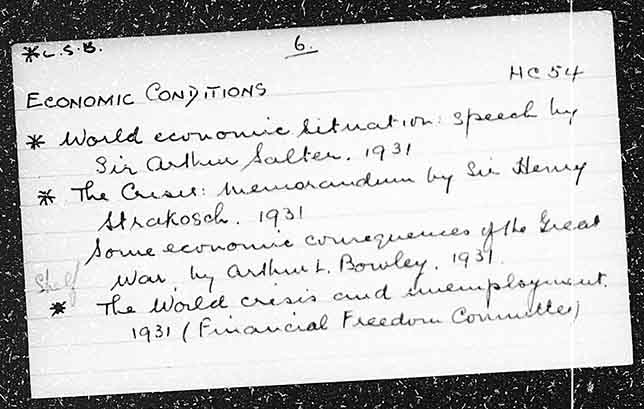 * L.S.B.
6.
HC 54
ECONOMIC CONDITIONS
* World economic situation: speech by
Sir Arthur Salter. 1931
* The Crisis: memorandum by Sir Henry
Strakosch. 1931
Some economic consequences of the Great
Shelf War, by Arthur L. Bowley. 1931.
* The World crisis and unemployment.
1931 (Financial Freedom Committee)